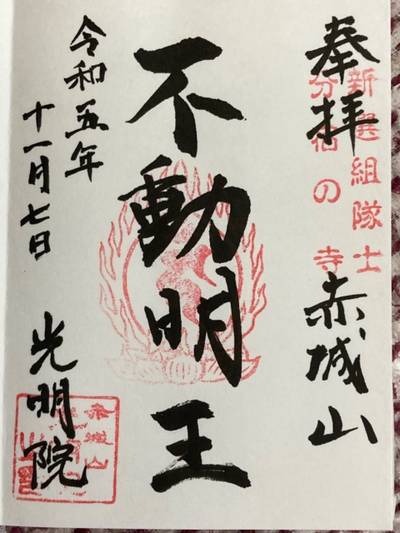 奉拝
新選組隊士
分宿の寺
赤城山
不動明王
令和五年
十一月七日
光明院
赤城山